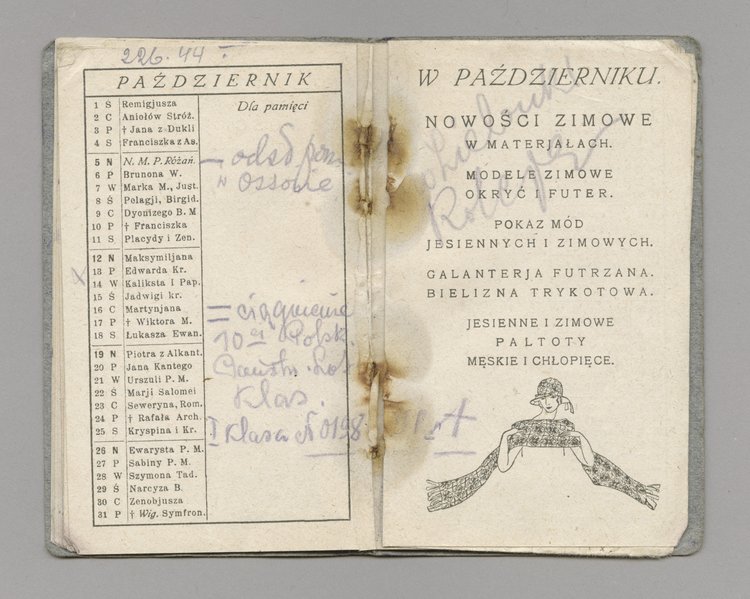 226. 44
PAŹDZIERNIK
Dla pamięci
1 S Remigjusza
2 C Aniołów Stróż.
3 P † Jana z Dukli
4 S Franciszka z As.
5 N N. M. P. Różań.
6 P Brunona W.
7 W Marka M., Just.
8 Ś Pelagji, Birgid.
9 C Dyonizego B. M
10 P † Franciszka
11 S Placydy i Zen.
12 N Maksymiljana
13 P Edwarda Kr.
14 W Kaliksta I Pap.
15 Ś Jadwigi kr.
16 C Martynjana
17 P † Wiktora M.
18 S Łukasza Ewan.
19 N Piotra z Alkant.
20 P Jana Kantego
21 W Urszuli P. M.
22 Ś Marji Salomei
23 C Seweryna, Rom.
24 P † Rafała Arch.
25 S Kryspina i Kr.
26 N Ewarysta P. M.
27 P Sabiny P. M.
28 W Szymona Tad.
29 Ś Narcyza B.
30 C Zenobjusza
31 P † Wig. Symfron.
w Ossowie
= ciągnienie
10 Polsk.
Klas.
I Klasa № 0198
W PAŹDZIERNIKU.
NOWOŚCI ZIMOWE
W MATERJAŁACH.
MODELE ZIMOWE
OKRYĆ I FUTER.
POKAZ MÓD
JESIENNYCH I ZIMOWYCH.
GALANTERJA FUTRZANA.
BIELIZNA TRYKOTOWA.
JESIENNE I ZIMOWE
PALTOTY
MĘSKIE I CHŁOPIĘCE.